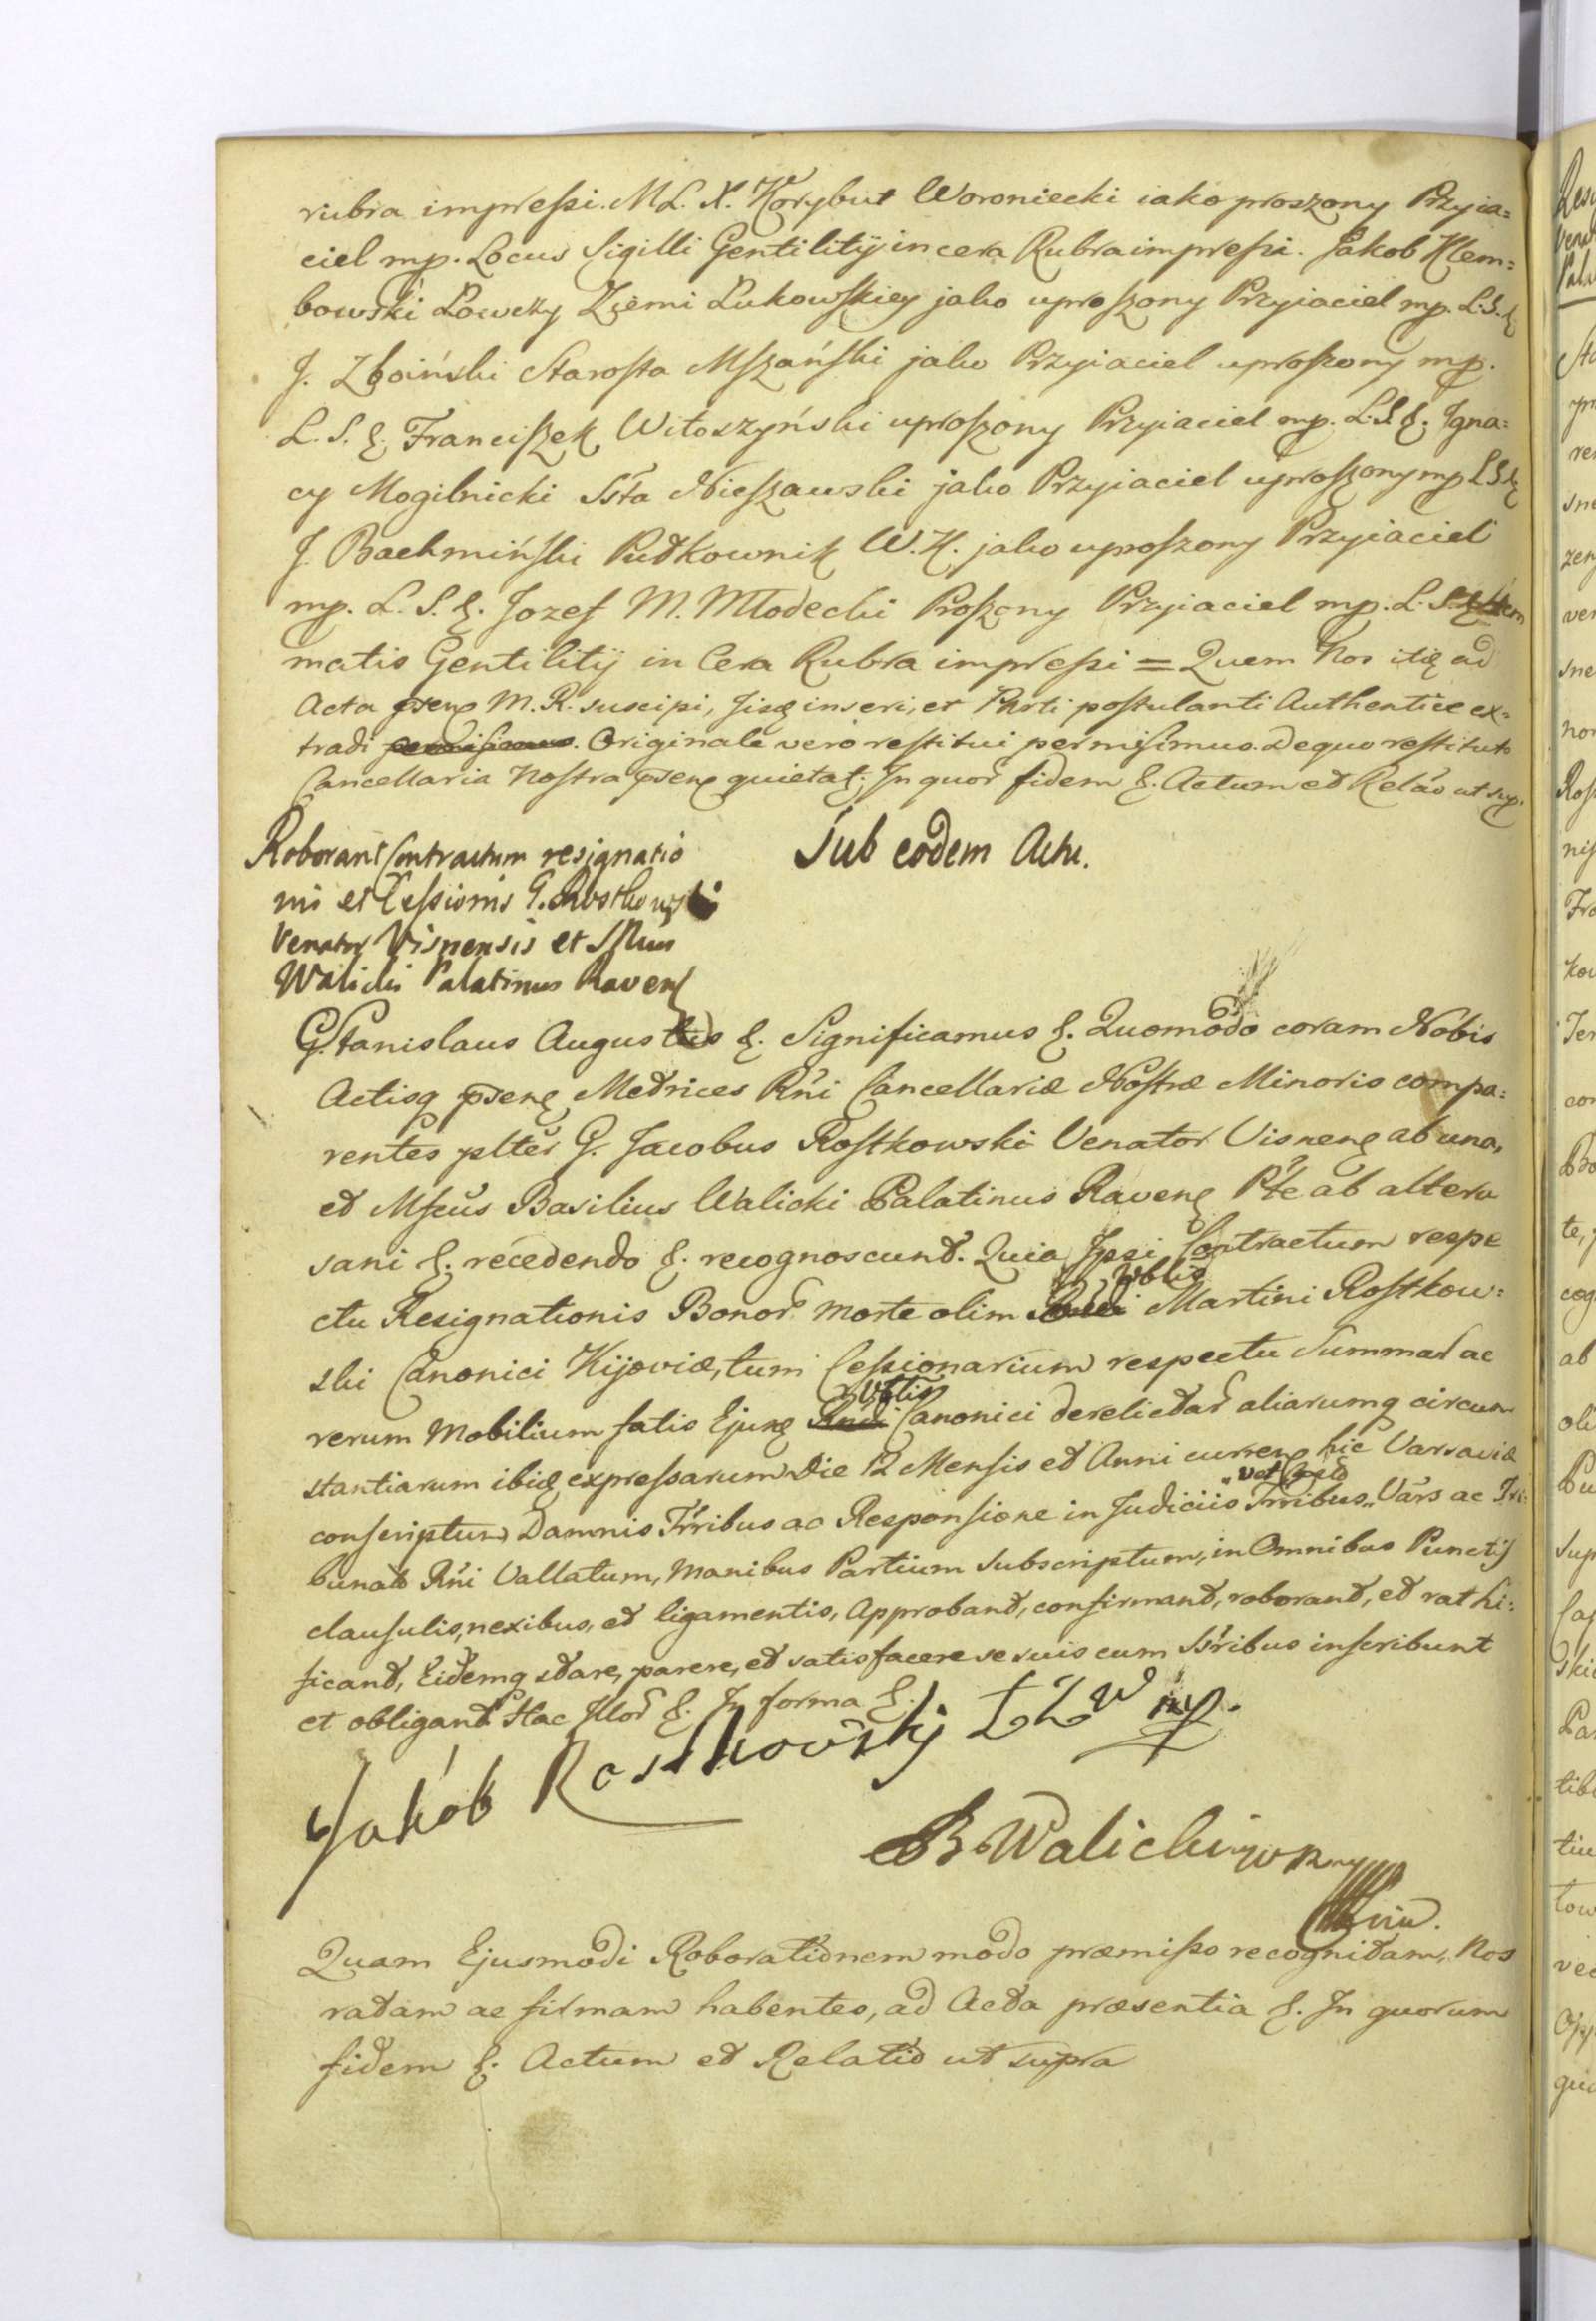 rubra impressi. M L. X. Korybut Woroniecki iako proszony Przyia=
ciel mp. Locus Sigilli Gentilitij in cera Rubra impressi. Jakob Klem=
bowski Łowczy Ziemi Łukowskiey jako uproszony Przyiaciel mp. L. S. &
J. Zboiński Starosta Mszański jako Przyiaciel uproszony mp.
L. S. &. Franciszek Witoszyński uproszony Przyiaciel mp. L. S. &. Igna=
cy Mogilnicki Ssta Nieszawski jako Przyiaciel uproszony mp L S &
J. Bachmiński Pułkownik W. K. jako uproszony Przyiaciel
mp. L. S. &. Jozef M. Młodecki Proszony Przyiaciel mp. L. S.
matis Gentilitij in Cera Rubra impressi = Quem Nos itq ad
Acta psenę M. R. suscipi, Jisq inseri, et Parti postulanti Authentice ex=
tradi permisimus. Originale vero restitui permisimus. De quo restituto
Cancellaria Nostra psenę quietat. In quor fidem &. Actum et Relao ut sup.
Roborant Contractum resignatio
nis et Cessionis G. Rostkowski
Venator Visnensis et
Walicki Palatinus Ravens
Sub eodem Actu.
G. Stanislaus Augustus &. Significamus &. Quomodo coram Nobis
Actisq psenę Metrices Rni Cancellariæ Nostræ Minoris compa=
rentes plter G. Jacobus Rostkowski Venator Visnenę ab una,
et Mfcus Basilius Walicki Palatinus Ravenę Pte ab altera
sani &. recedendo &. recognoscunt. Quia Ipsi Contractum respe
ctu Resignationis Bonor morte olim Martini Rostkow=
ski Canonici Kijoviæ, tum Cessionarium respectu Summar ac
rerum Mobilium fatis Ejusq Rndi Canonici derelictar aliarumq circum
stantiarum ibiq expressarum Die 12 Mensis et Anni currenę hic Varsaviæ
conscriptum Damnis Trribus ac Responsione in Judiciis Trribus vel Vars ac Tri=
bunat Rni Vallatum, Manibus Partium subscriptum, in Omnibus Punctis
clausulis, nexibus, et ligamentis, Approbant, confirmant, roborant, et rathi=
ficant, Eidemq stare, parere, et satisfacere se suis cum Ssribus inscribunt
et obligant Hac Illor &. In forma &.
Jakób Rostkowskj Ł Z W mp.
B Walicki WR mp
Quam Ejusmodi Roborationem modo præmisso recognitam, Nos
ratam ac firmam habentes, ad Acta præsentia &. In quorum
fidem &. Actum et Relatio ut supra